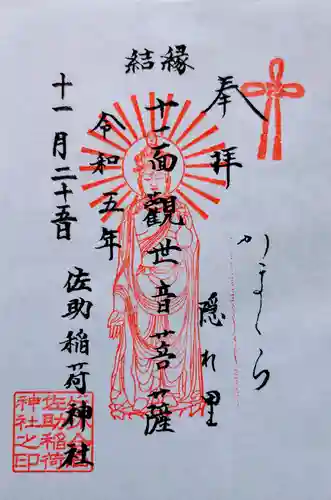 縁結
奉拝
かまくら
隠れ里
十一面観世音菩薩
令和五年
十一月二十五日
佐助稲荷神社
鎌倉
佐助稲荷
神社之印